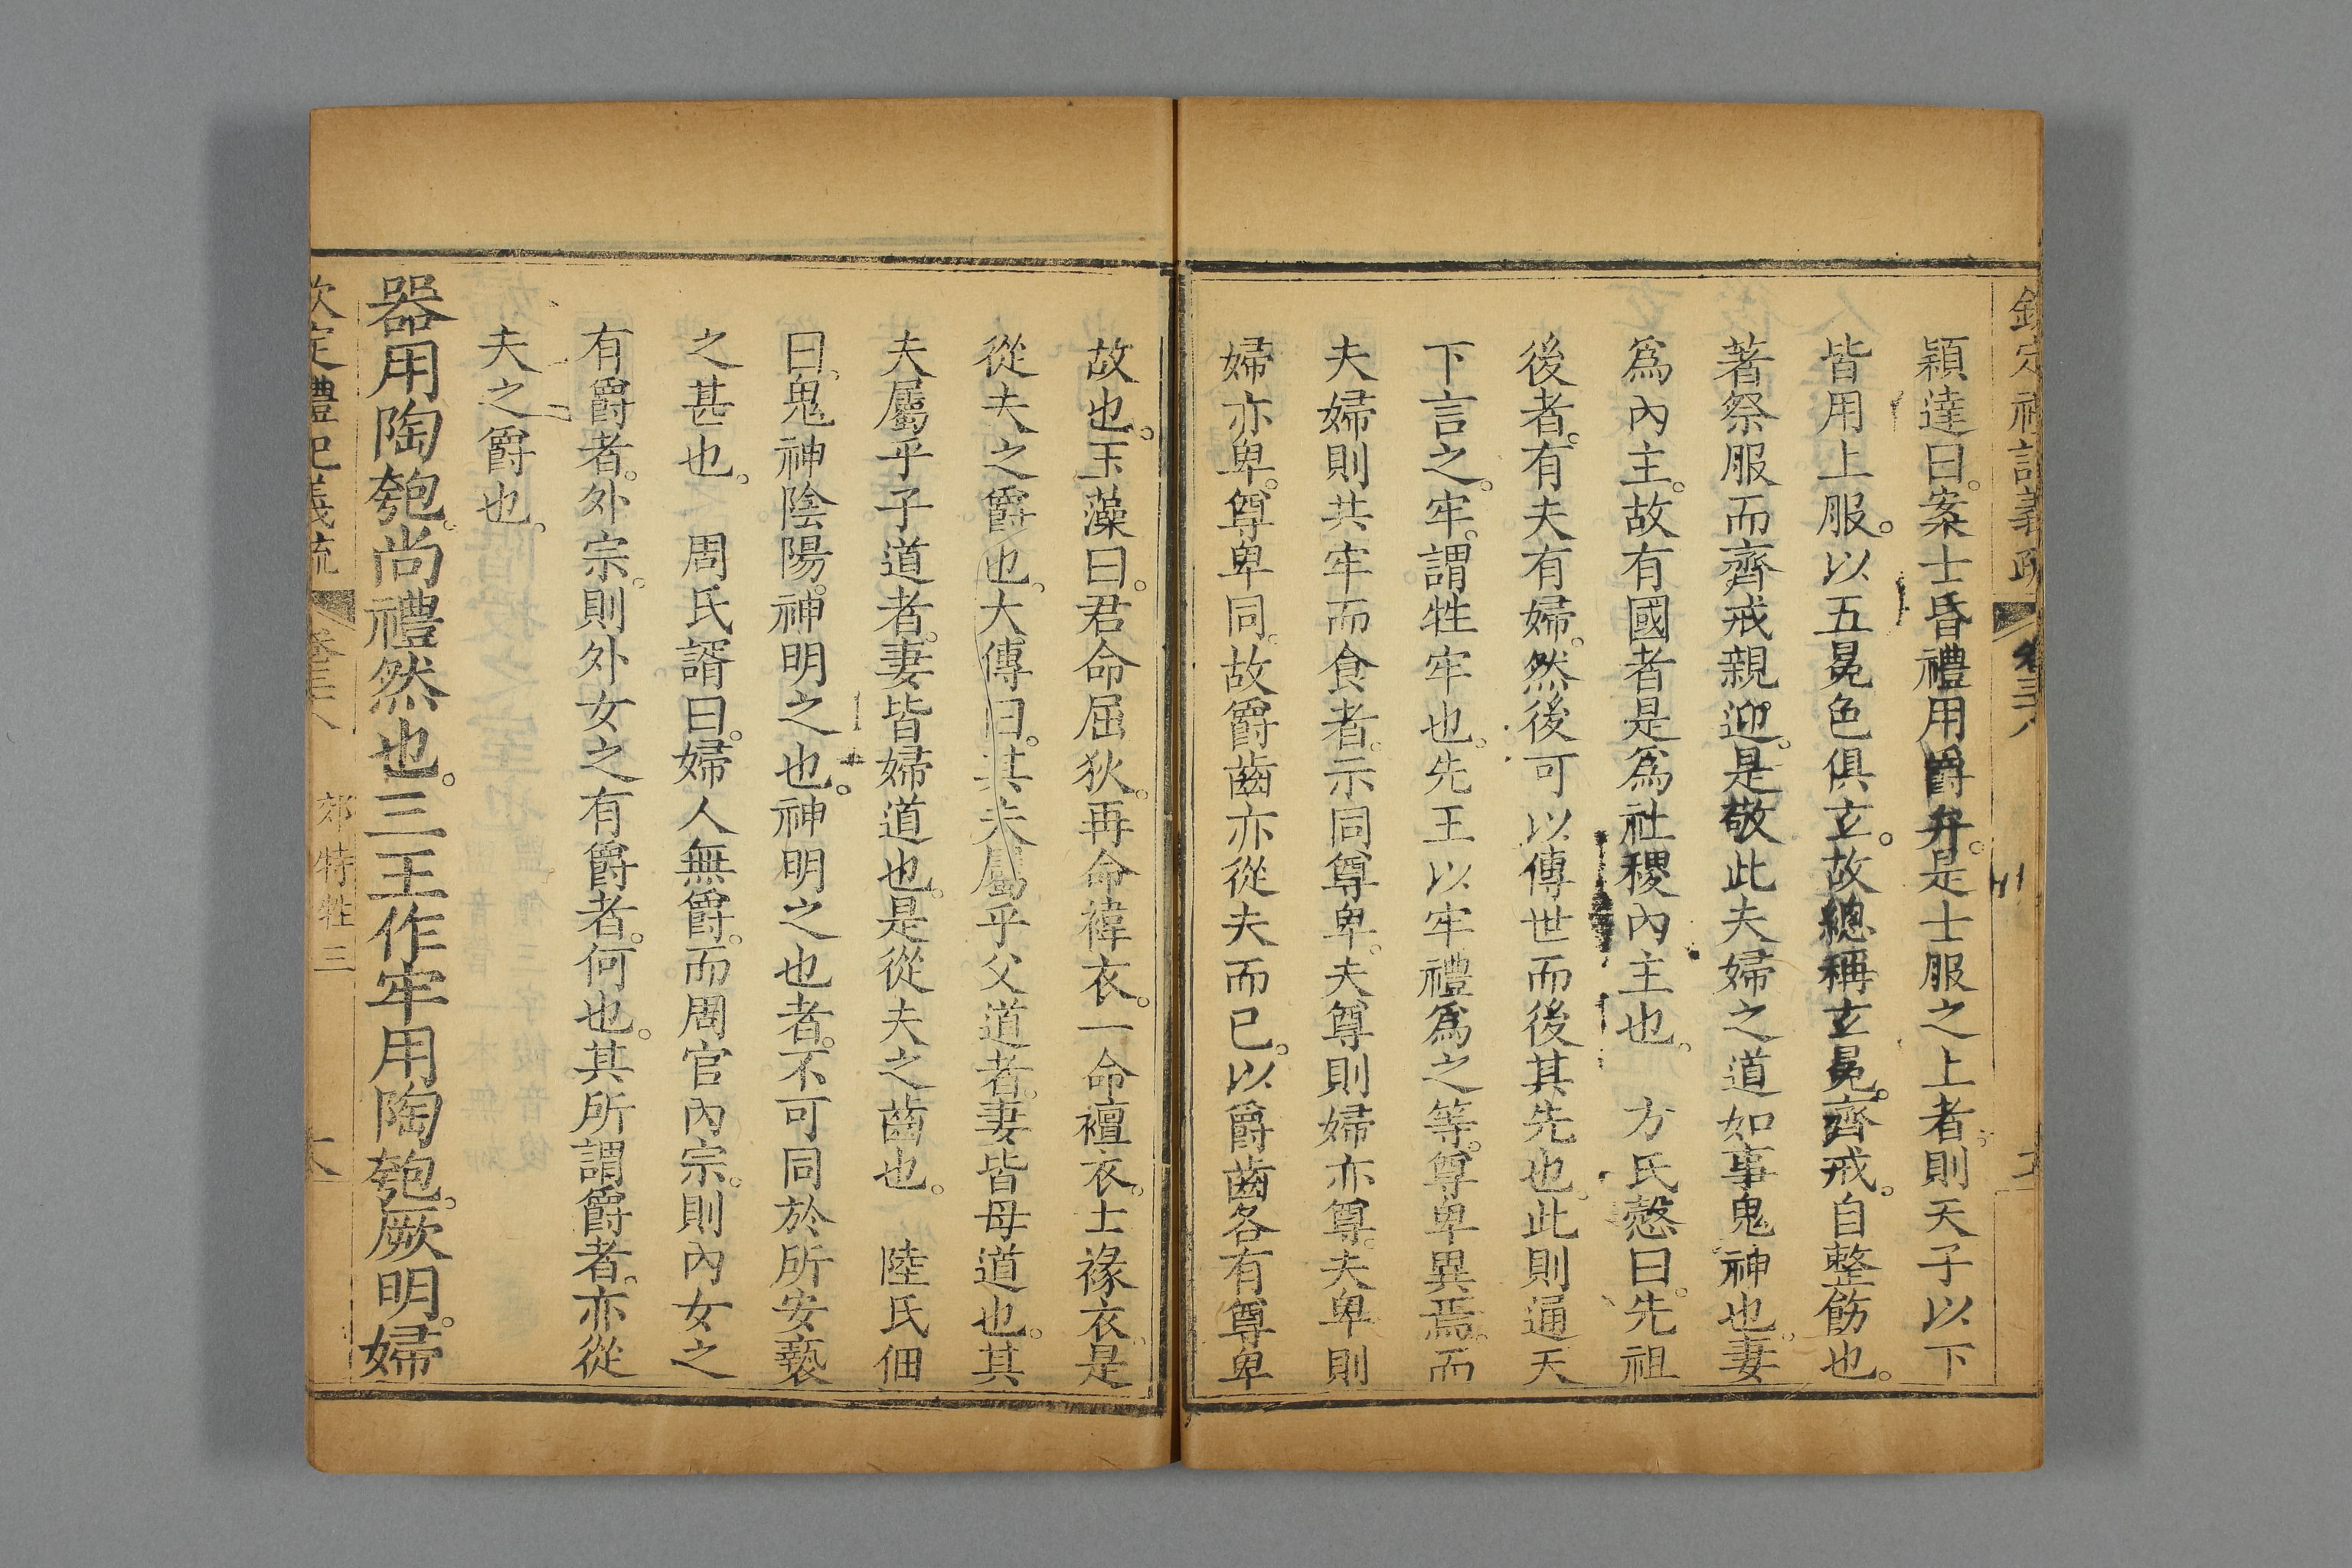 欽定禮記義疏 卷三十八
穎達曰。案士昏禮用爵弁。是士服之上者。則天子以下
皆用上服。以五冕色俱玄。故總稱玄冕。齊戒。自整飭也。
著祭服而齊戒親迎。是敬此夫婦之道如事鬼神也。妻
爲內主。故有國者是爲社稷內主也。 方氏慤曰。先祖
後者。有夫有婦。然後可以傳世而後其先也。此則通天
下言之。牢。謂牲牢也。先王以牢禮爲之等。尊卑異焉。而
夫婦則共牢而食者。示同尊卑。夫尊則婦亦尊。夫卑則
婦亦卑。尊卑同。故爵齒亦從夫而已。以爵齒各有尊卑
故也。玉藻曰。君命屈狄。再命褘衣。一命襢衣。士褖衣。是
從夫之爵也。大傳曰。其夫屬乎父道者。妻皆母道也。其
夫屬乎子道者。妻皆婦道也。是從夫之齒也。 陸氏佃
曰。鬼神陰陽。神明之也。神明之也者。不可同於所安褻
之甚也。 周氏諝曰。婦人無爵。而周官內宗。則內女之
有爵者。外宗。則外女之有爵者。何也。其所謂爵者。亦從
夫之爵也。
器用陶匏。尚禮然也。三王作牢用陶匏。厥明。婦
欽定禮記義疏 卷三十八 郊特牲 三